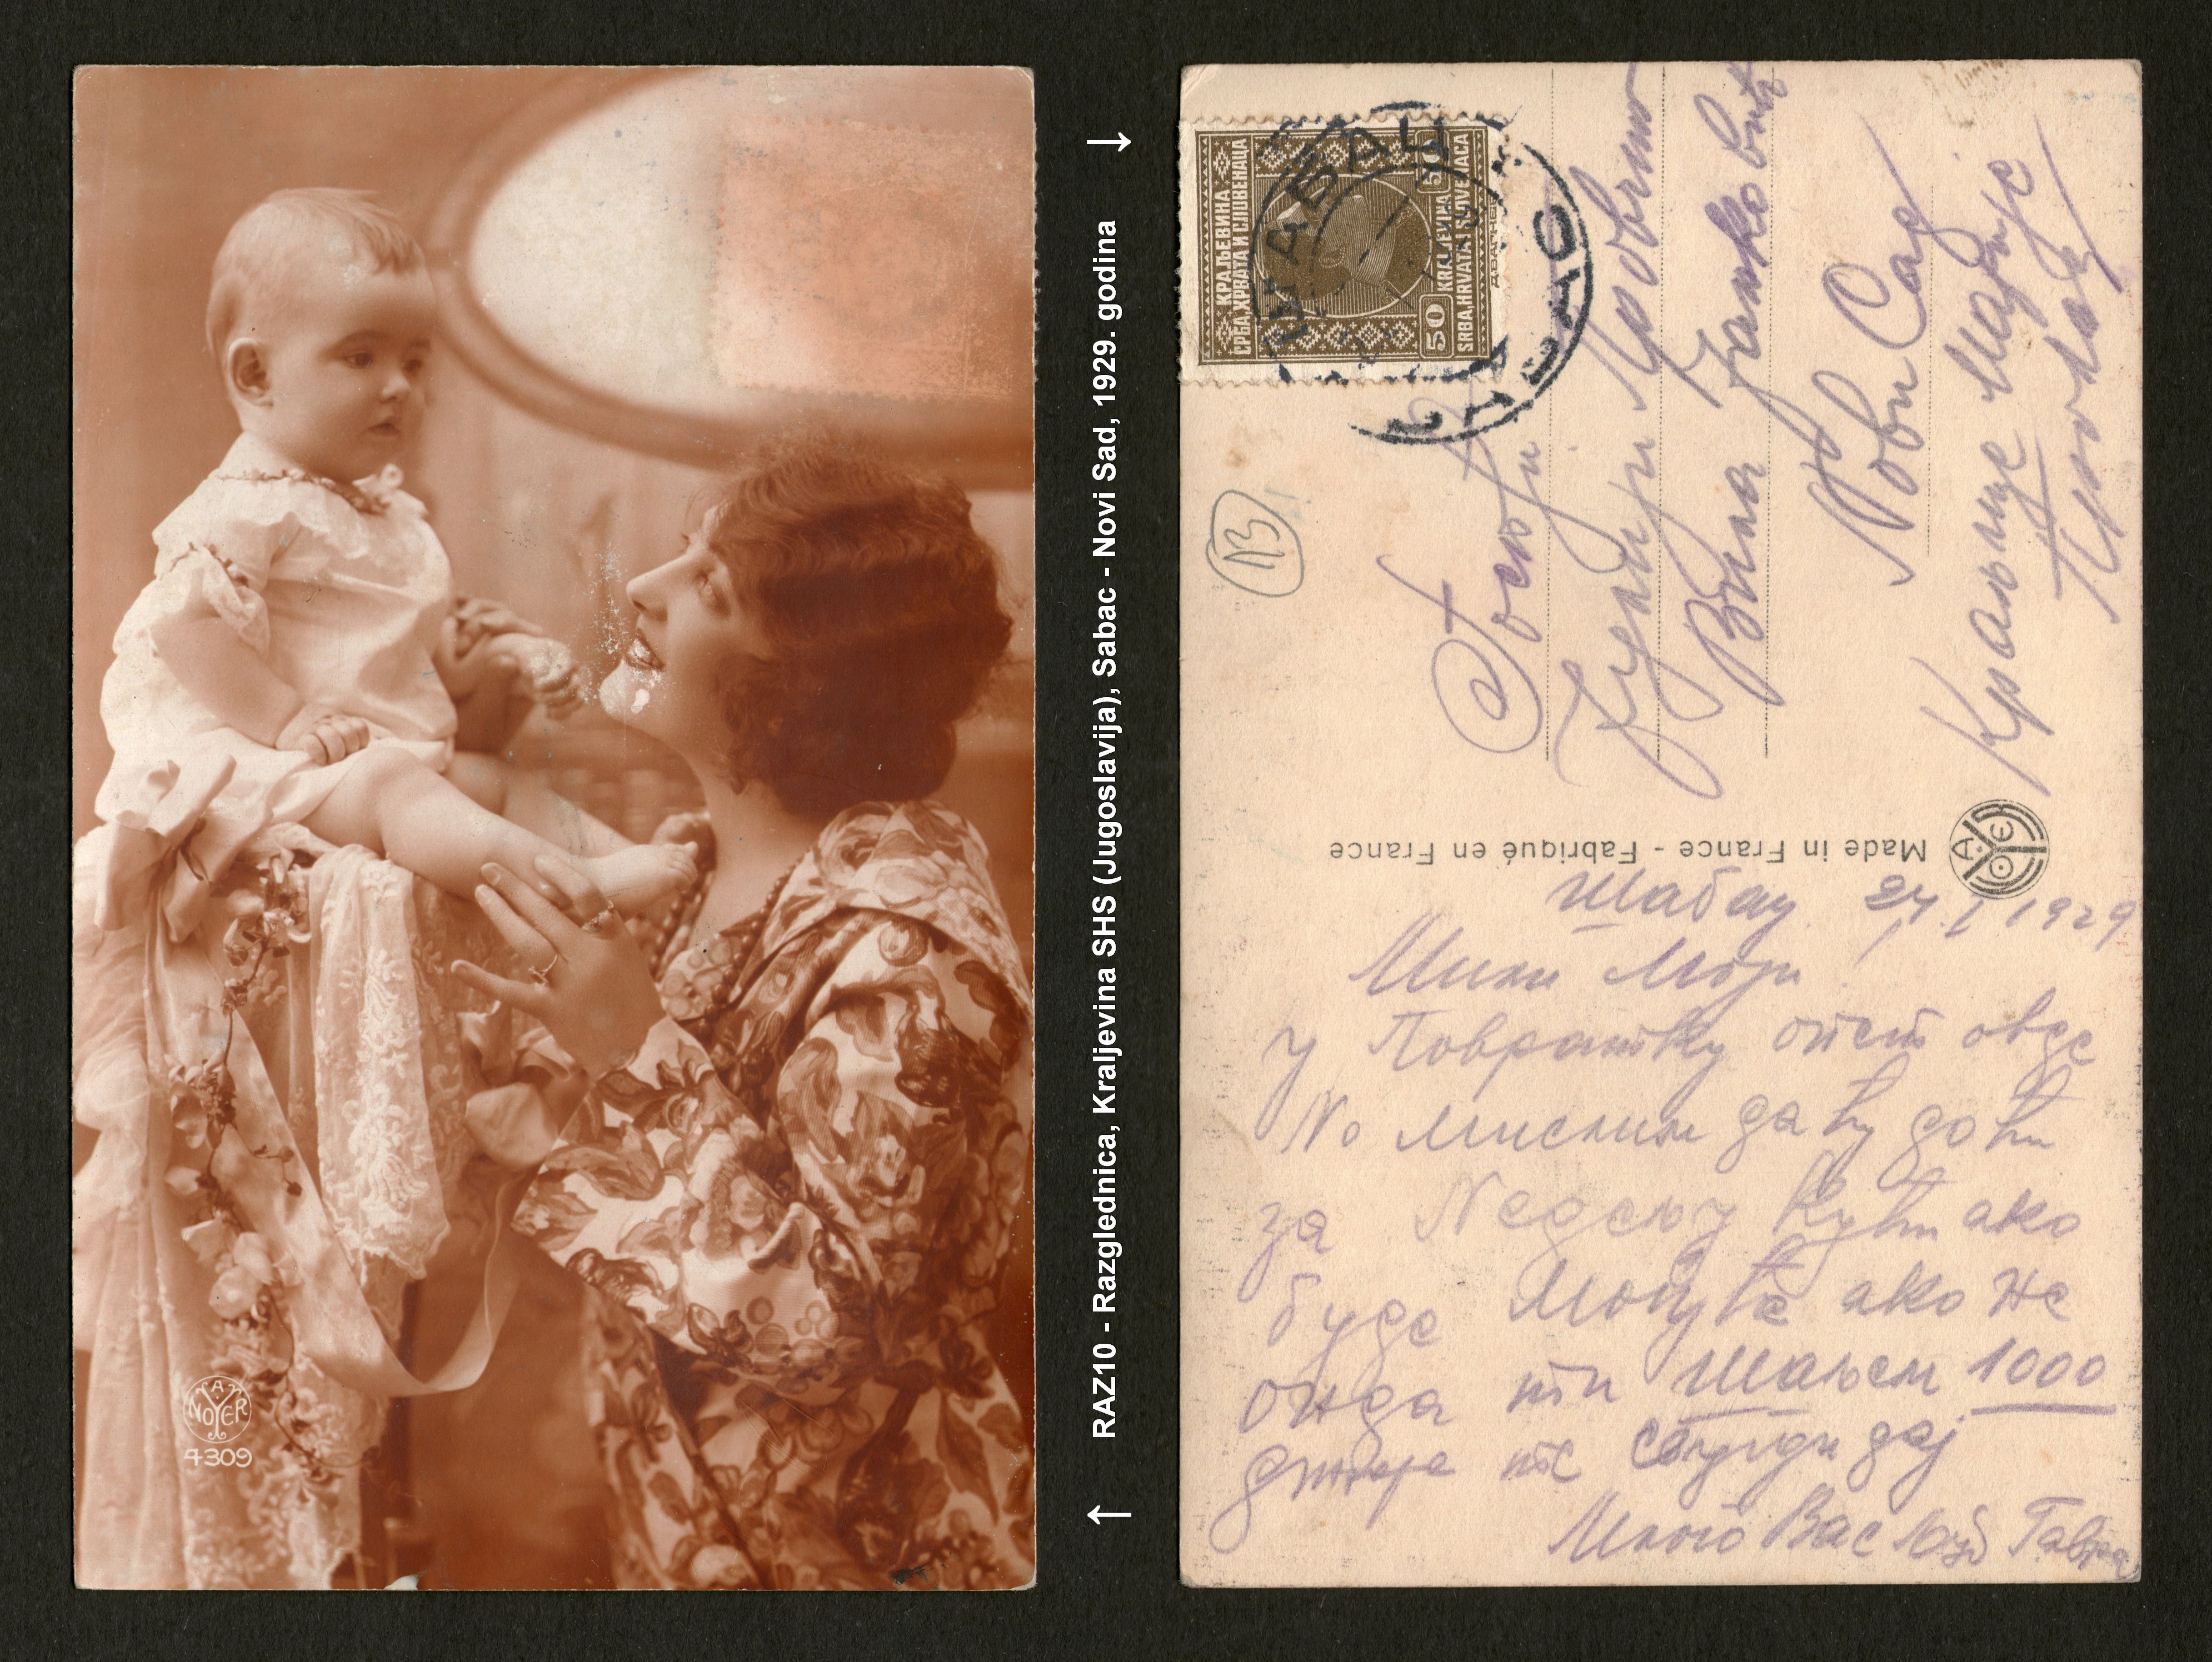 A NOYER
4309
RAZ10 - Razglednica, Kraljevina SHS (Jugoslavija), Sabac - Novi Sad, 1929. godina
КРАЉЕВИНА
СРБА, ХРВАТА И СЛОВЕНАЦА
50 KRALJEVINA 50
SRBA, HRVATA I SLOVENACA
ШАБАЦ
ŠABAC
13
Госпођи
Вила Јанковић
Нови Сад
Краљице Марије
Made in France - Fabriqué en France
A NOYER
Шабац 24. I 1929
Мили моји!
У Повратку опет овде
No мислим да ћу доћи
за Nедељу Кући ако
буде Могуће ако не
онда ти Шаљем 1000
динара те
дај
Много Вас Гавра